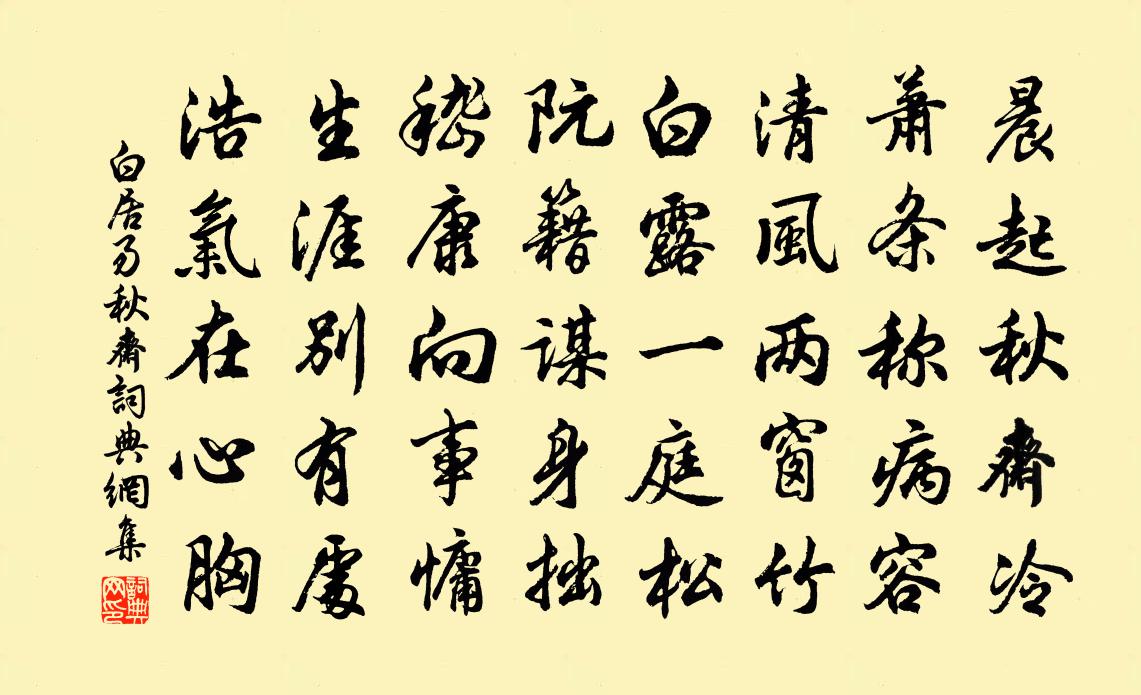 晨起秋齋冷
蕭条称病容
清風两窗竹
白露一庭松
阮籍謀身拙
嵇康向事慵
生涯別有處
浩氣在心胸
白居易秋齋詞典網集
詞典网印